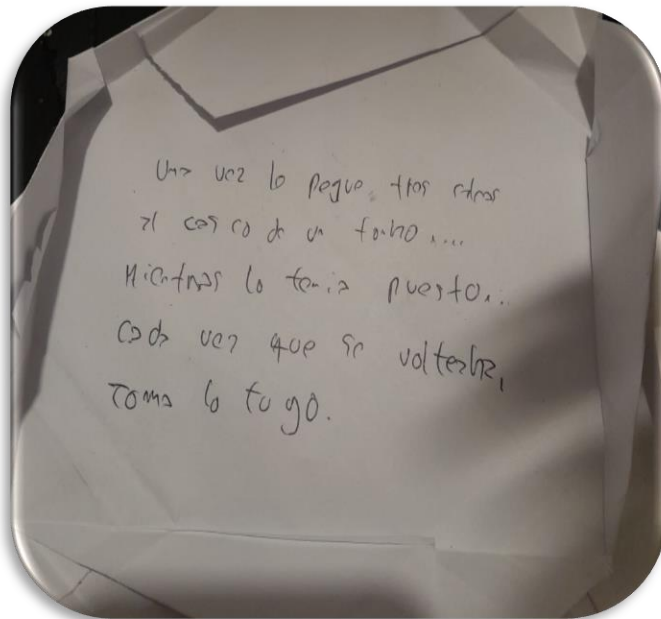 Una vez lo pegue tres
al casco de un tombo....
Mientras lo tenia puesto...
Cada vez que se volteaba,
Toma lo tuyo.